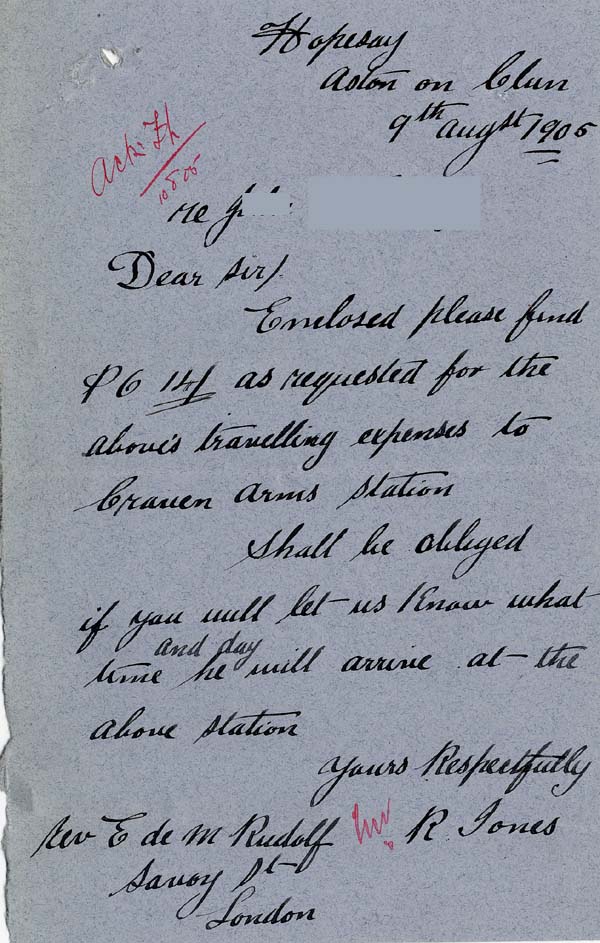 Hopesay
Aston on Clun
9th Augst 1905
Ack:
10.8.05
re
Dear Sir/
Enclosed please find
PO 14/ as requested for the
above's travelling expenses to
Craven Arms Station
Shall be obliged
if you will let us know what
and day
time he will arrive at the
above station
Yours Respectfully
Rev E de M Rudolf R Jones
Savoy St
London